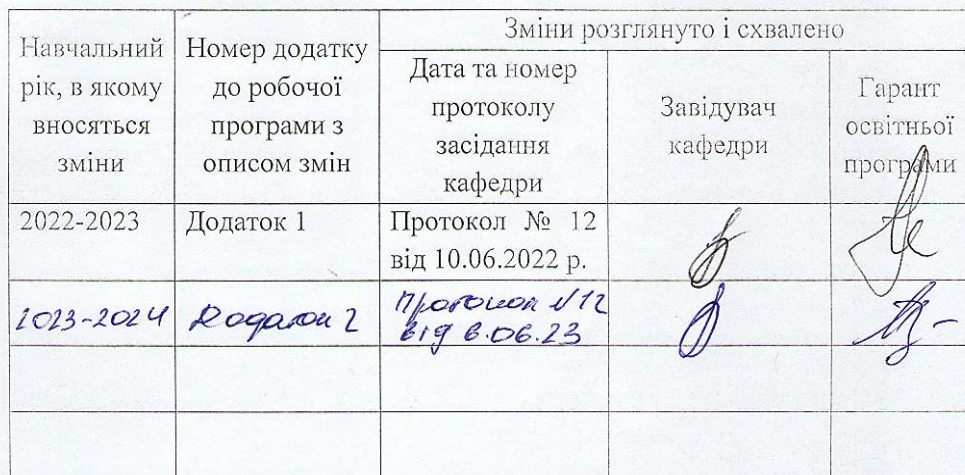 Зміни розглянуто і схвалено
Навчальний
рік, в якому
вносяться
зміни
Номер додатку
до робочої
програми з
описом змін
Дата та номер
протоколу
засідання
кафедри
Завідувач
кафедри
Гарант
освітньої
програми
2022-2023
Додаток 1
Протокол № 12
від 10.06.2022 р.
2023-2024
Додаток 2
Протокол №12
від 6.06.23